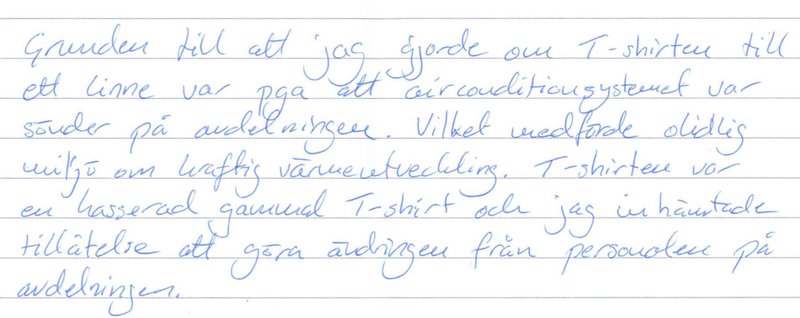 Grunden till att jag gjorde om T-shirten till
ett linne var pga att airconditionsystemet var
sönder på avdelningen. Vilket medförde olidlig
miljö om kraftig värmeutveckling. T-shirten var
en kasserad gammal T-shirt och jag inhämtade
tillåtelse att göra ändringen från personalen på
avdelningen.